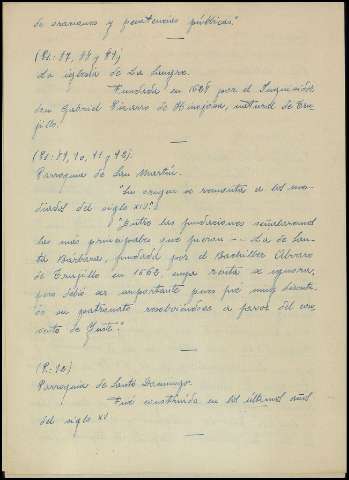 de oraciones y penitencias públicas."
La iglesia de La Sangre.
Fundada en 1628 por el Inquisidor
don Gabriel Pizarro de Hinojosa, natural de Tru-
jillo.
Parroquia de San Martín.
"Su origen se remonta a los me-
diados del siglo XIV."
"Entre las fundaciones señalaremos
las más principales que fueron -- La de San-
ta Bárbara, fundada por el Bachiller Alvaro
de Trujillo en 1562 cuya renta se ignora,
pero debió ser importante pues fué muy discuti-
do su patronato resolviéndose a favor del con-
vento de Yuste."
Parroquia de Santo Domingo.
Fué construida en los últimos años
del siglo XV